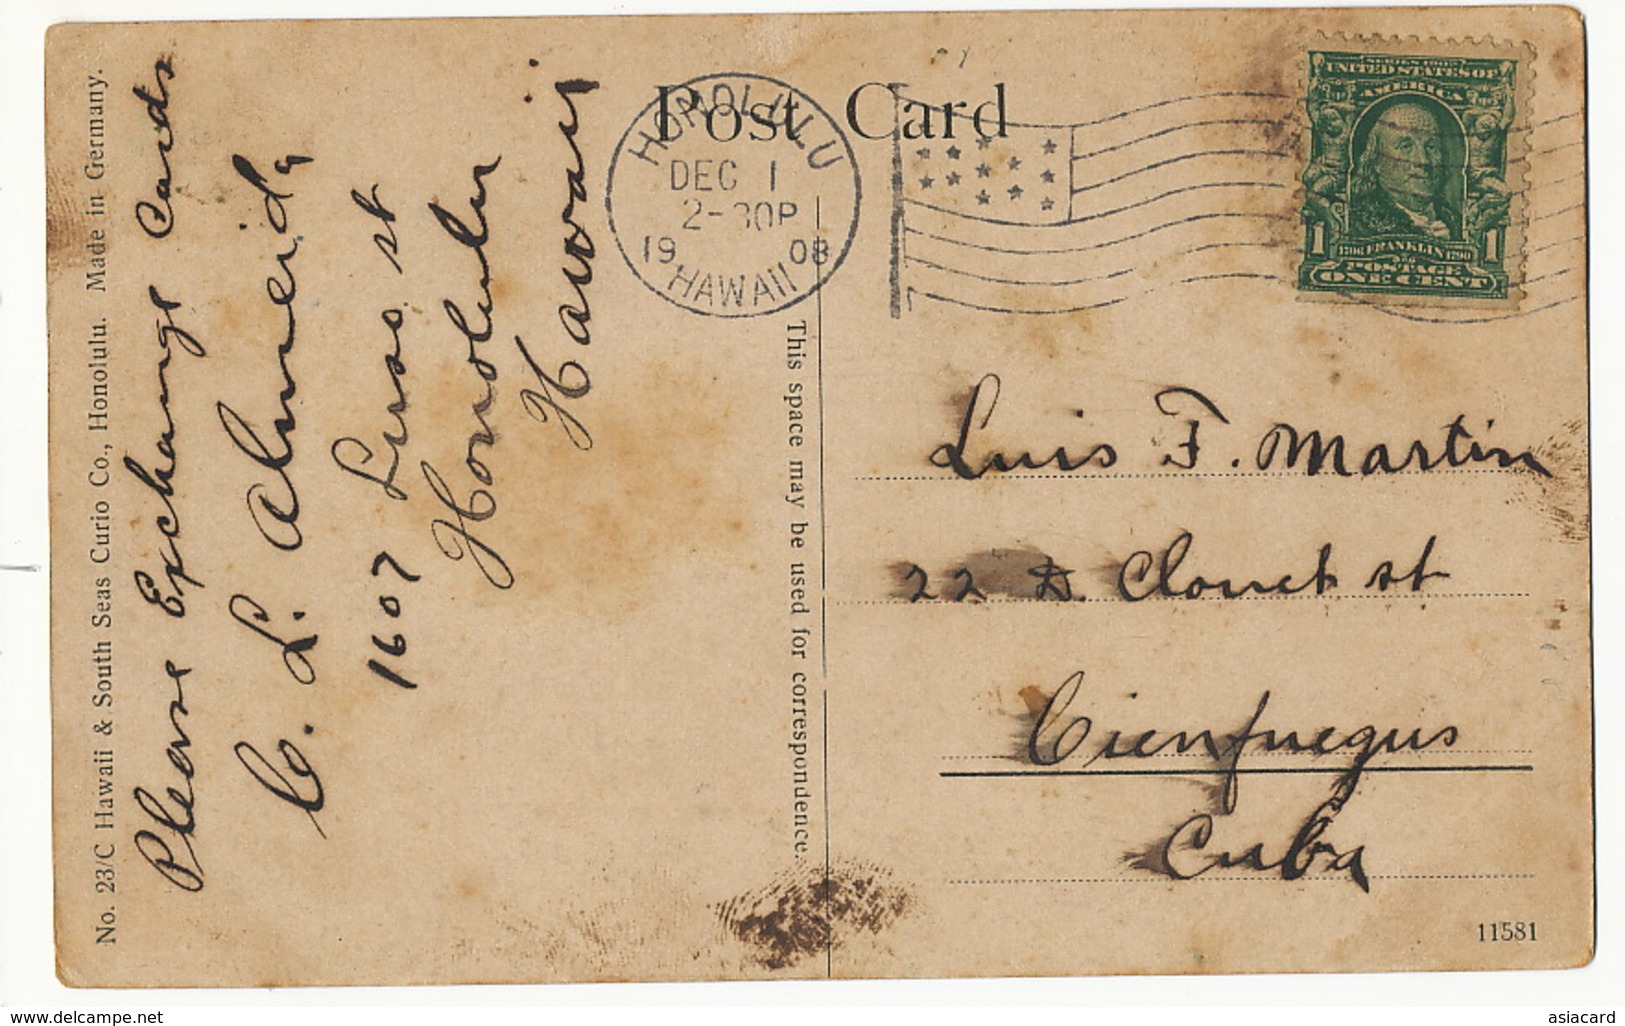 No. 23/C Hawaii & South Seas Curio Co., Honolulu. Made in Germany.
Please Exchange Cards
C. L. Almeida
1607 Luso st
Honolulu
Hawaii
Post Card
HONOLULU
DEC 1
2-30P
1908
HAWAII
SERIES 1902
UNITED STATES OF
AMERICA
1 1706 FRANKLIN 1790 1
POSTAGE
ONE CENT
This space may be used for correspondence.
Luis F. Martin
22 D. Clouet st
Cienfuegus
Cuba
11581
www.delcampe.net
asiacard